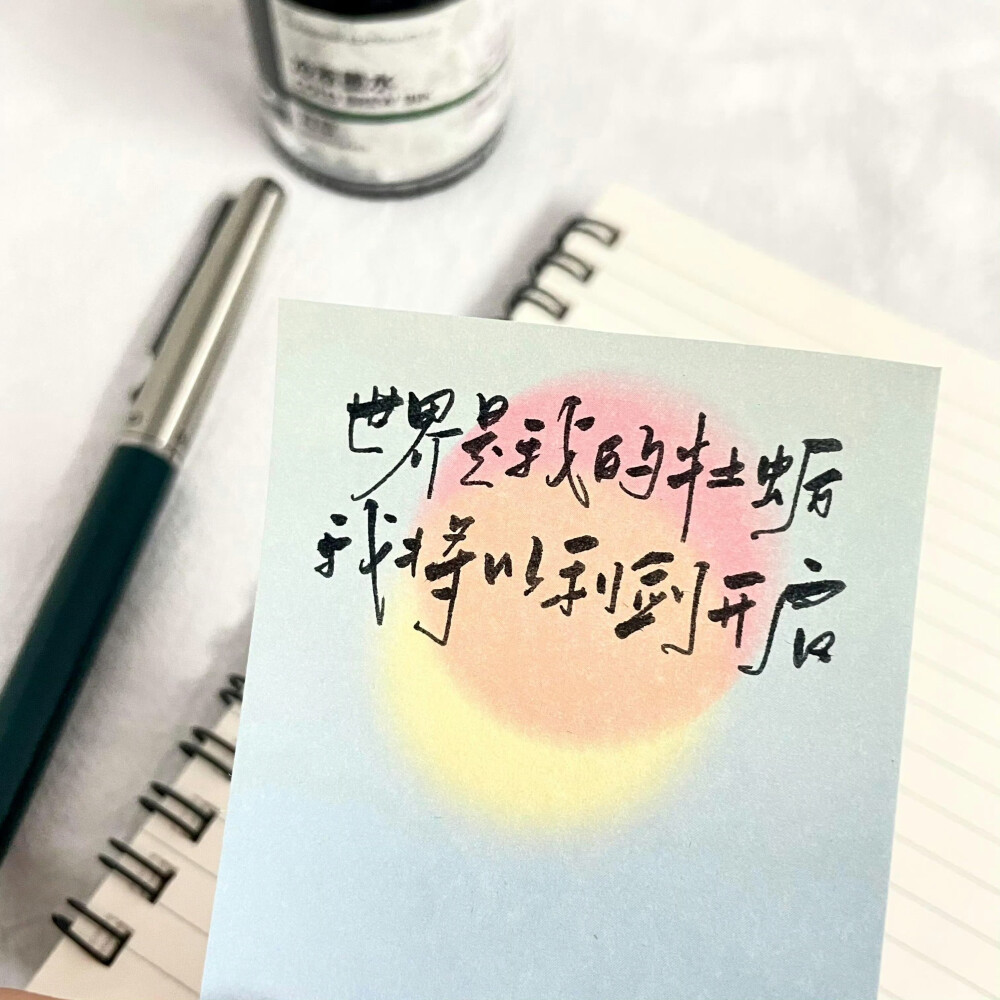 世界是我的牡蛎
我将以利剑开启